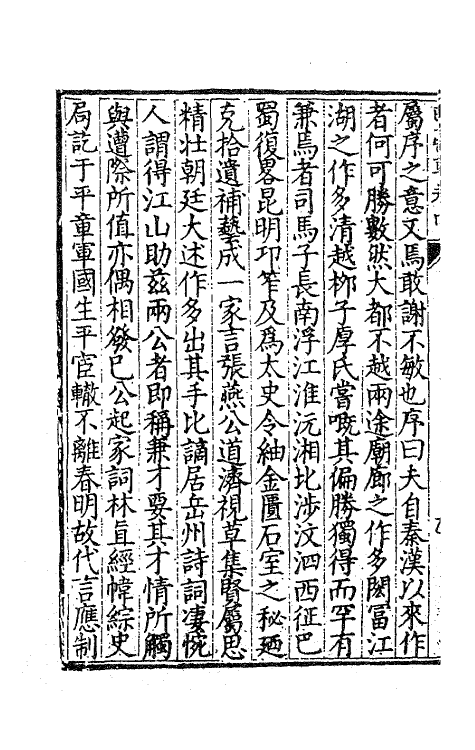 屬序之意又焉敢謝不敏也序曰夫自秦漢以來作
者何可勝數然大都不越兩途廟廊之作多閎冨江
湖之作多清越柳子厚氏嘗嘅其偏勝獨得而罕有
兼焉者司馬子長南浮江淮沅湘北涉汶泗西征巴
蜀復畧昆明卭筰及爲太史令紬金匱石室之秘廼
克拾遺補蓺成一家言張燕公道濟視草集賢屬思
精壮朝廷大述作多出其手比謫居岳州詩詞凄惋
人謂得江山助兹兩公者即稱兼才要其才情所觸
與遭際所值亦偶相發已公起家詞林直經幃綜史
局訖于平章軍國生平宦轍不離春明故代言應制